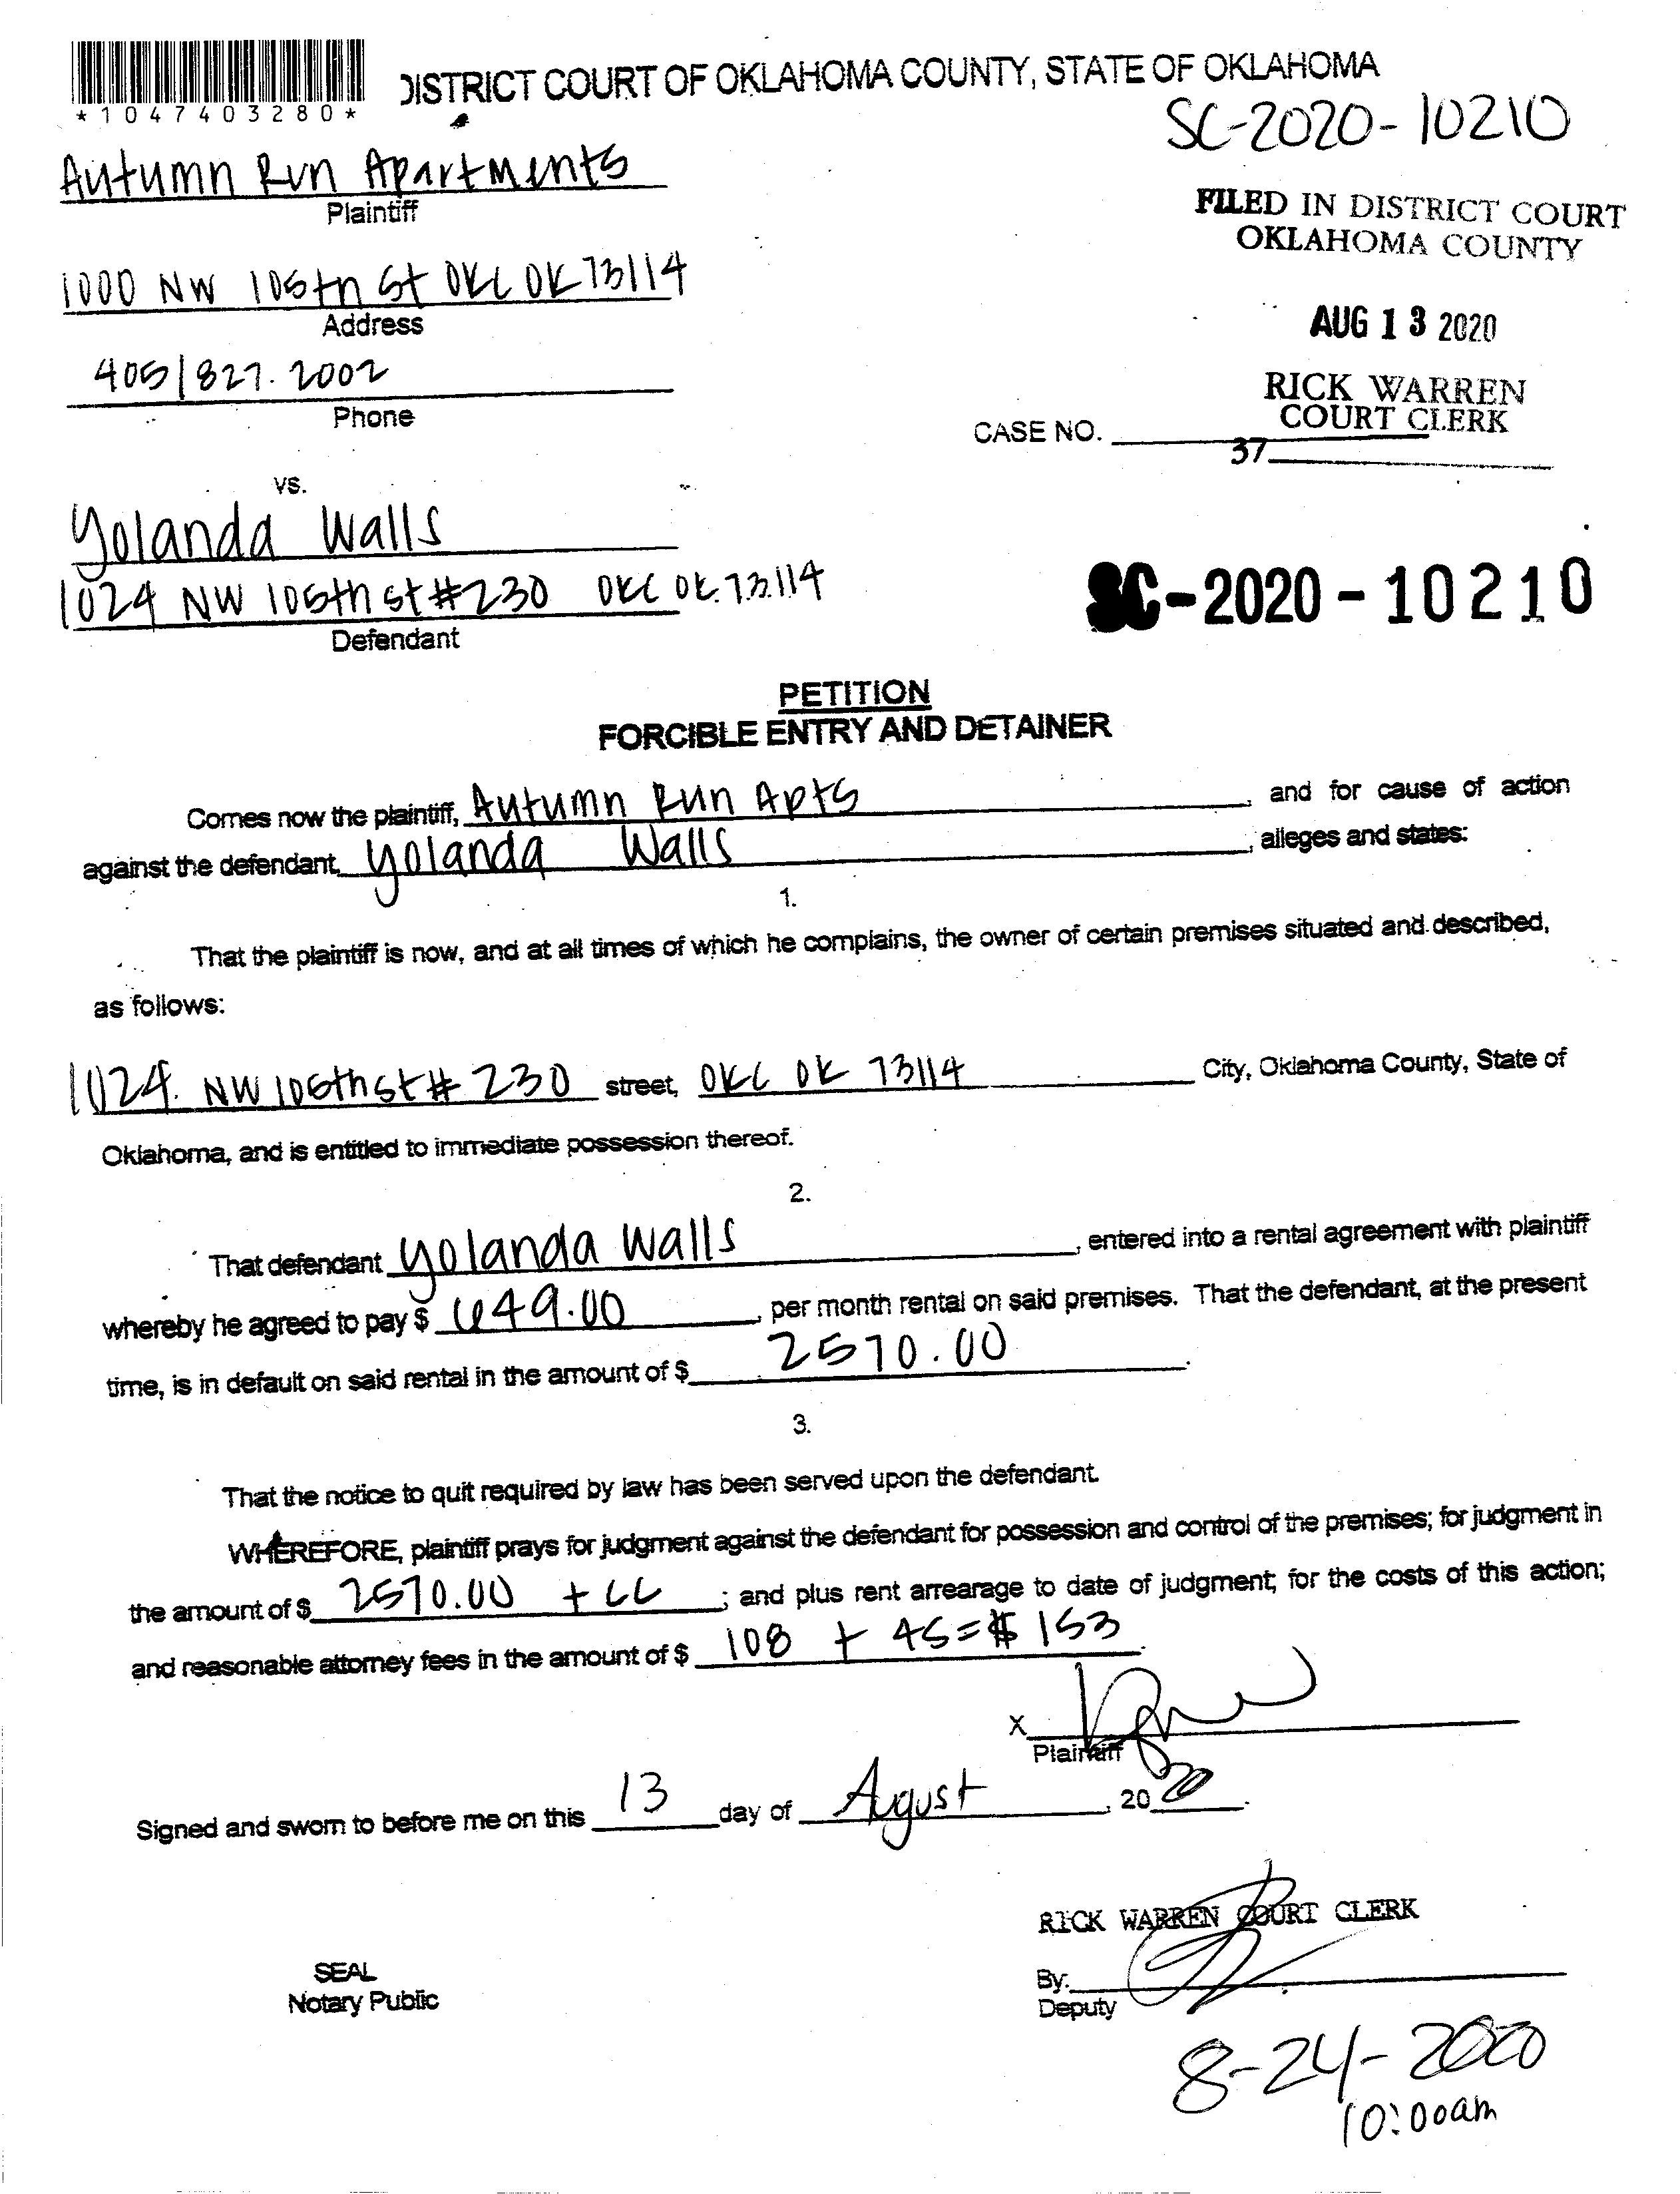 *1047403280*
DISTRICT COURT OF OKLAHOMA COUNTY, STATE OF OKLAHOMA
SC-2020-10210
Autumn Run Apartments
Plaintiff
FILED IN DISTRICT COURT
OKLAHOMA COUNTY
1000 NW 105th St OKC OK 73114
Address
AUG 13 2020
405/827.2002
Phone
RICK WARREN
COURT CLERK
CASE NO.
37
vs.
Yolanda Walls
1024 NW 105th st #230 OKC OK. 73114
Defendant
SC-2020-10210
PETITION
FORCIBLE ENTRY AND DETAINER
Comes now the plaintiff, Autumn Run Apts, and for cause of action
against the defendant, Yolanda Walls, alleges and states:
1.
That the plaintiff is now, and at all times of which he complains, the owner of certain premises situated and described,
as follows:
1024. NW 105th st # 230 street, OKC OK 73114 City, Oklahoma County, State of
Oklahoma, and is entitled to immediate possession thereof.
2.
That defendant Yolanda Walls, entered into a rental agreement with plaintiff
whereby he agreed to pay $ 649.00, per month rental on said premises. That the defendant, at the present
time, is in default on said rental in the amount of $ 2570.00.
3.
That the notice to quit required by law has been served upon the defendant.
WHEREFORE, plaintiff prays for judgment against the defendant for possession and control of the premises; for judgment in
the amount of $ 2570.00 + CC; and plus rent arrearage to date of judgment; for the costs of this action;
and reasonable attorney fees in the amount of $ 108 + 45=$ 153.
X
Plaintiff
Signed and sworn to before me on this 13 day of Agust, 2020.
RICK WARREN COURT CLERK
SEAL
Notary Public
By:
Deputy
8-24-2020
10:00am